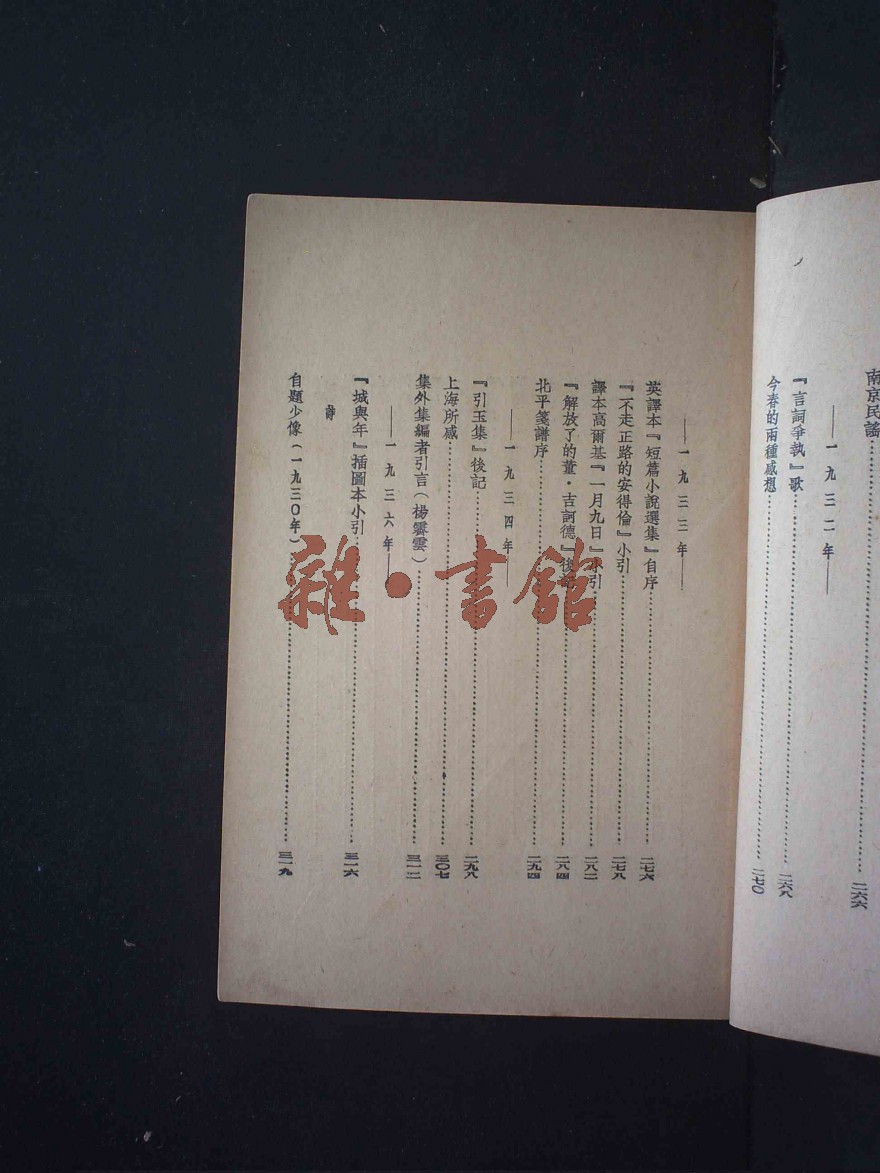 南京民謠……二六六
——一九三二年——
『言詞爭執』歌……二六八
今春的兩種感想……二七〇
——一九三三年——
英譯本『短篇小說選集』自序……二七六
『不走正路的安得倫』小引……二七八
譯本高爾基『一月九日』小引……二八二
『解放了的董·吉訶德』後記……二八四
北平箋譜序……二九四
——一九三四年——
『引玉集』後記……二九八
上海所感……三〇七
集外集編者引言（楊霽雲）……三一二
——一九三六年——
『城與年』插圖本小引……三一六
詩
自題少像（一九三〇年）……三一九
雜·書館